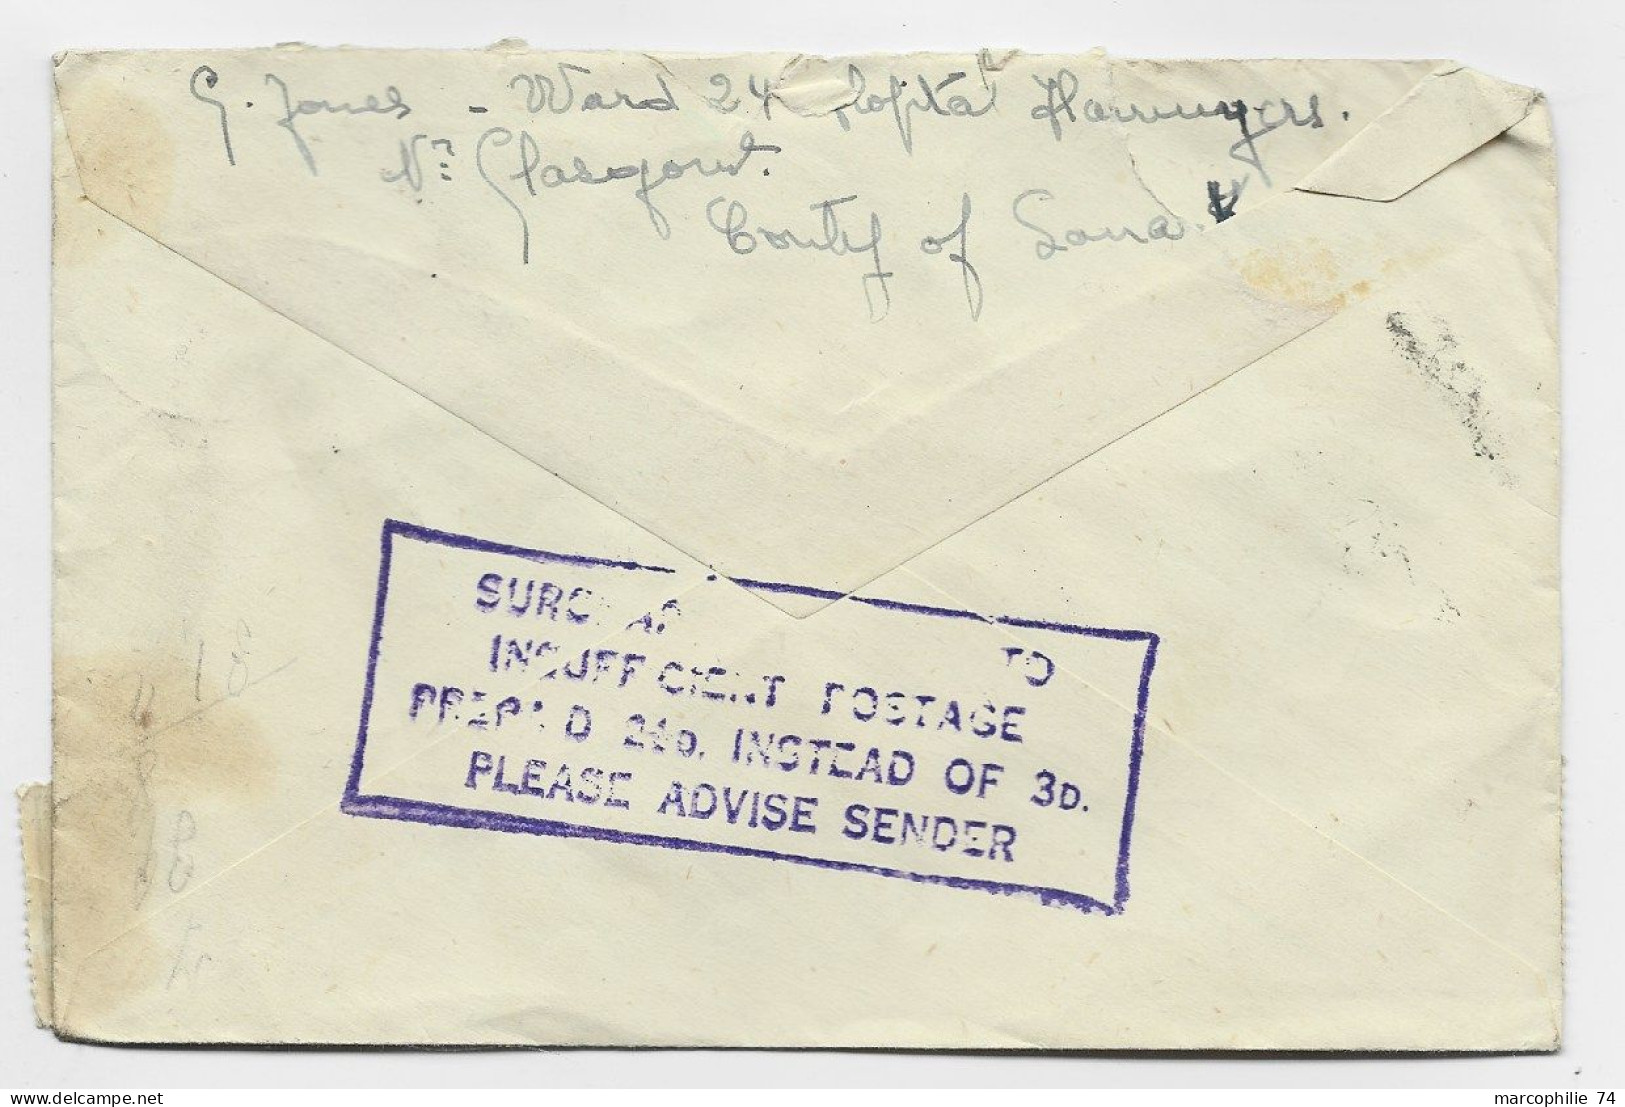 G. Jones - Ward 24 Hopital Hairmyers.
Nr Glasgow.
Conty of Lana
SURCHAR TO
INSUFFICIENT POSTAGE
PREPAID 2½D. INSTEAD OF 3D.
PLEASE ADVISE SENDER
18
marcophilie 74